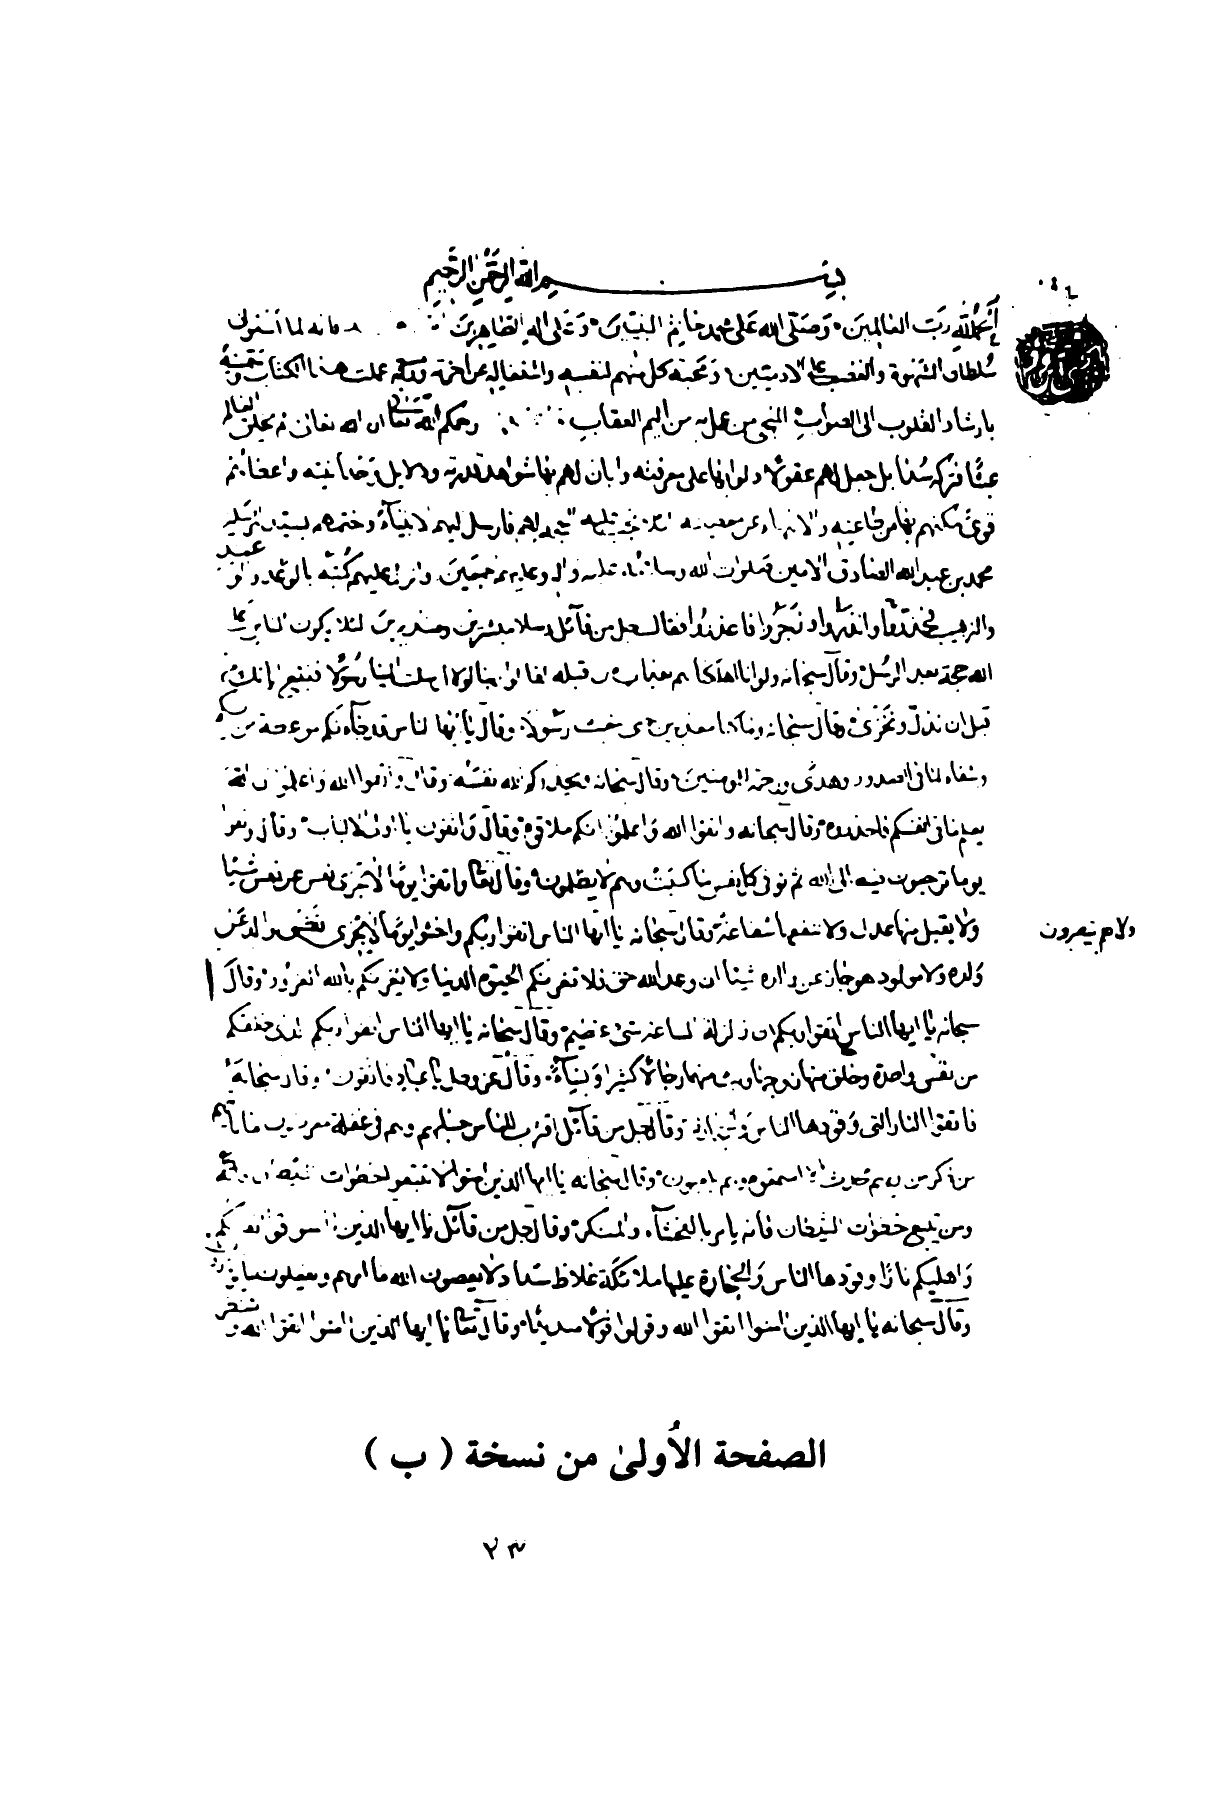 بسم الله الرحمن الرحيم
الحمد لله رب العالمين وصلى الله على محمد خاتم النبيين وعلى اله الطاهرين فانه لما استولى
سلطان الشهوة والغضب على الادميين ومحبة كل منهم لنفسه واشتغاله عن اخرته عملت هذا الكتاب
بارشاد القلوب الى الصواب المنجي من عمل به من اليم العقاب رحمكم الله تعالى ان الله تعالى لم يخلق العالم
عبثا فتركه سدا بل جعل لهم عقولا دلوا بها على معرفته وابان لهم بها شواهد قدرته ودلايل وحدانيته واعطاهم
قوى مكنهم بها من طاعته والانتهاء عن معصيته فارسل اليهم الانبياء وختمهم بسيد المرسلين
محمد بن عبد الله الصادق الامين صلوات الله وسلامه عليه واله وعليهم اجمعين وانزل عليهم كتبه بالوعد والوعيد
والترهيب فقال جل من قائل رسلا مبشرين ومنذرين لئلا يكون للناس على
الله حجة بعد الرسل وقال سبحانه ولو انا اهلكناهم بعذاب من قبله لقالوا ربنا لولا ارسلت الينا رسولا فنتبع اياتك من
قبل ان نذل ونخزى وقال سبحانه وما كنا معذبين حتى نبعث رسولا وقال يا ايها الناس قد جاءتكم موعظة من ربكم
وشفاء لما في الصدور وهدى ورحمة للمومنين وقال سبحانه ويحذركم الله نفسه وقال واعلموا ان الله
يعلم ما في انفسكم فاحذروه وقال سبحانه واتقوا الله واعلموا انكم ملاقوه وقال واتقون يا اولى الالباب وقال واتقوا
يوما ترجعون فيه الى الله ثم توفى كل نفس ما كسبت وهم لا يظلمون وقال تعالى واتقوا يوما لا تجزى نفس عن نفس شيئا
ولا يقبل منها عدل ولا تنفعها شفاعة وقال سبحانه يا ايها الناس اتقوا ربكم واخشوا يوما لا يجزى والد عن
ولا هم ينصرون
ولده ولا مولود هو جاز عن والده شيئا ان وعد الله حق فلا تغرنكم الحيوة الدنيا ولا يغرنكم بالله الغرور وقال
سبحانه يا ايها الناس اتقوا ربكم ان زلزلة الساعة شيء عظيم وقال سبحانه يا ايها الناس اتقوا ربكم الذى خلقكم
من نفس واحدة وخلق منها زوجها وبث منهما رجالا كثيرا ونساء وقال عز وجل يا عباد فاتقون وقال سبحانه
فاتقوا النار التى وقودها الناس والحجارة وقال جل من قائل اقترب للناس حسابهم وهم في غفلة معرضون ما ياتيهم
من ذكر من ربهم محدث الا استمعوه وهم يلعبون وقال سبحانه يا ايها الذين امنوا لا تتبعوا خطوات الشيطان
ومن يتبع خطوات الشيطان فانه يامر بالفحشاء والمنكر وقال جل من قائل يا ايها الذين امنوا قوا انفسكم
واهليكم نارا وقودها الناس والحجارة عليها ملائكة غلاظ شداد لا يعصون الله ما امرهم ويفعلون ما يؤمرون
وقال سبحانه يا ايها الذين امنوا اتقوا الله وقولوا قولا سديدا وقال تعالى يا ايها الذين امنوا اتقوا الله ولتنظر
الصفحة الأولى من نسخة ( ب )
٢٣